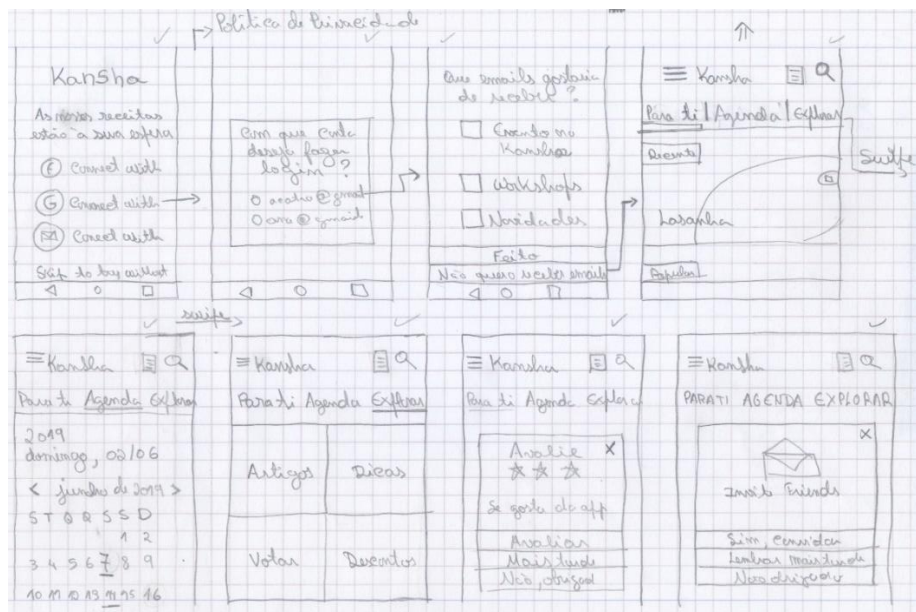 Política de Privacidade
Kansha
As nossas receitas
estão à sua espera
Connect with
G Connect with
Conect with
Skip
Com que conta
deseja fazer
login ?
Que emails gostaria
de receber ?
Eventos na
Kansha
Workshops
Novidades
Feito
Não quero receber emails
Kansha
Para ti | Agenda | Explorar
Recente
Lasanha
Popular
Swipe
swipe
Kansha
Para ti Agenda Explorar
2019
domingo, 02/06
< junho de 2019 >
S T Q Q S S D
1 2
3 4 5 6 7 8 9
15 16
Kansha
Para ti Agenda Explorar
Artigos Dicas
Votar Descontos
Kansha
Para ti Agenda Explorar
Avalie X
Se gosta da app
Avaliar
Mais tarde
Não, obrigad
Kansha
PARA TI AGENDA EXPLORAR
X
Friends
Sim, convidar
Lembrar mais tarde